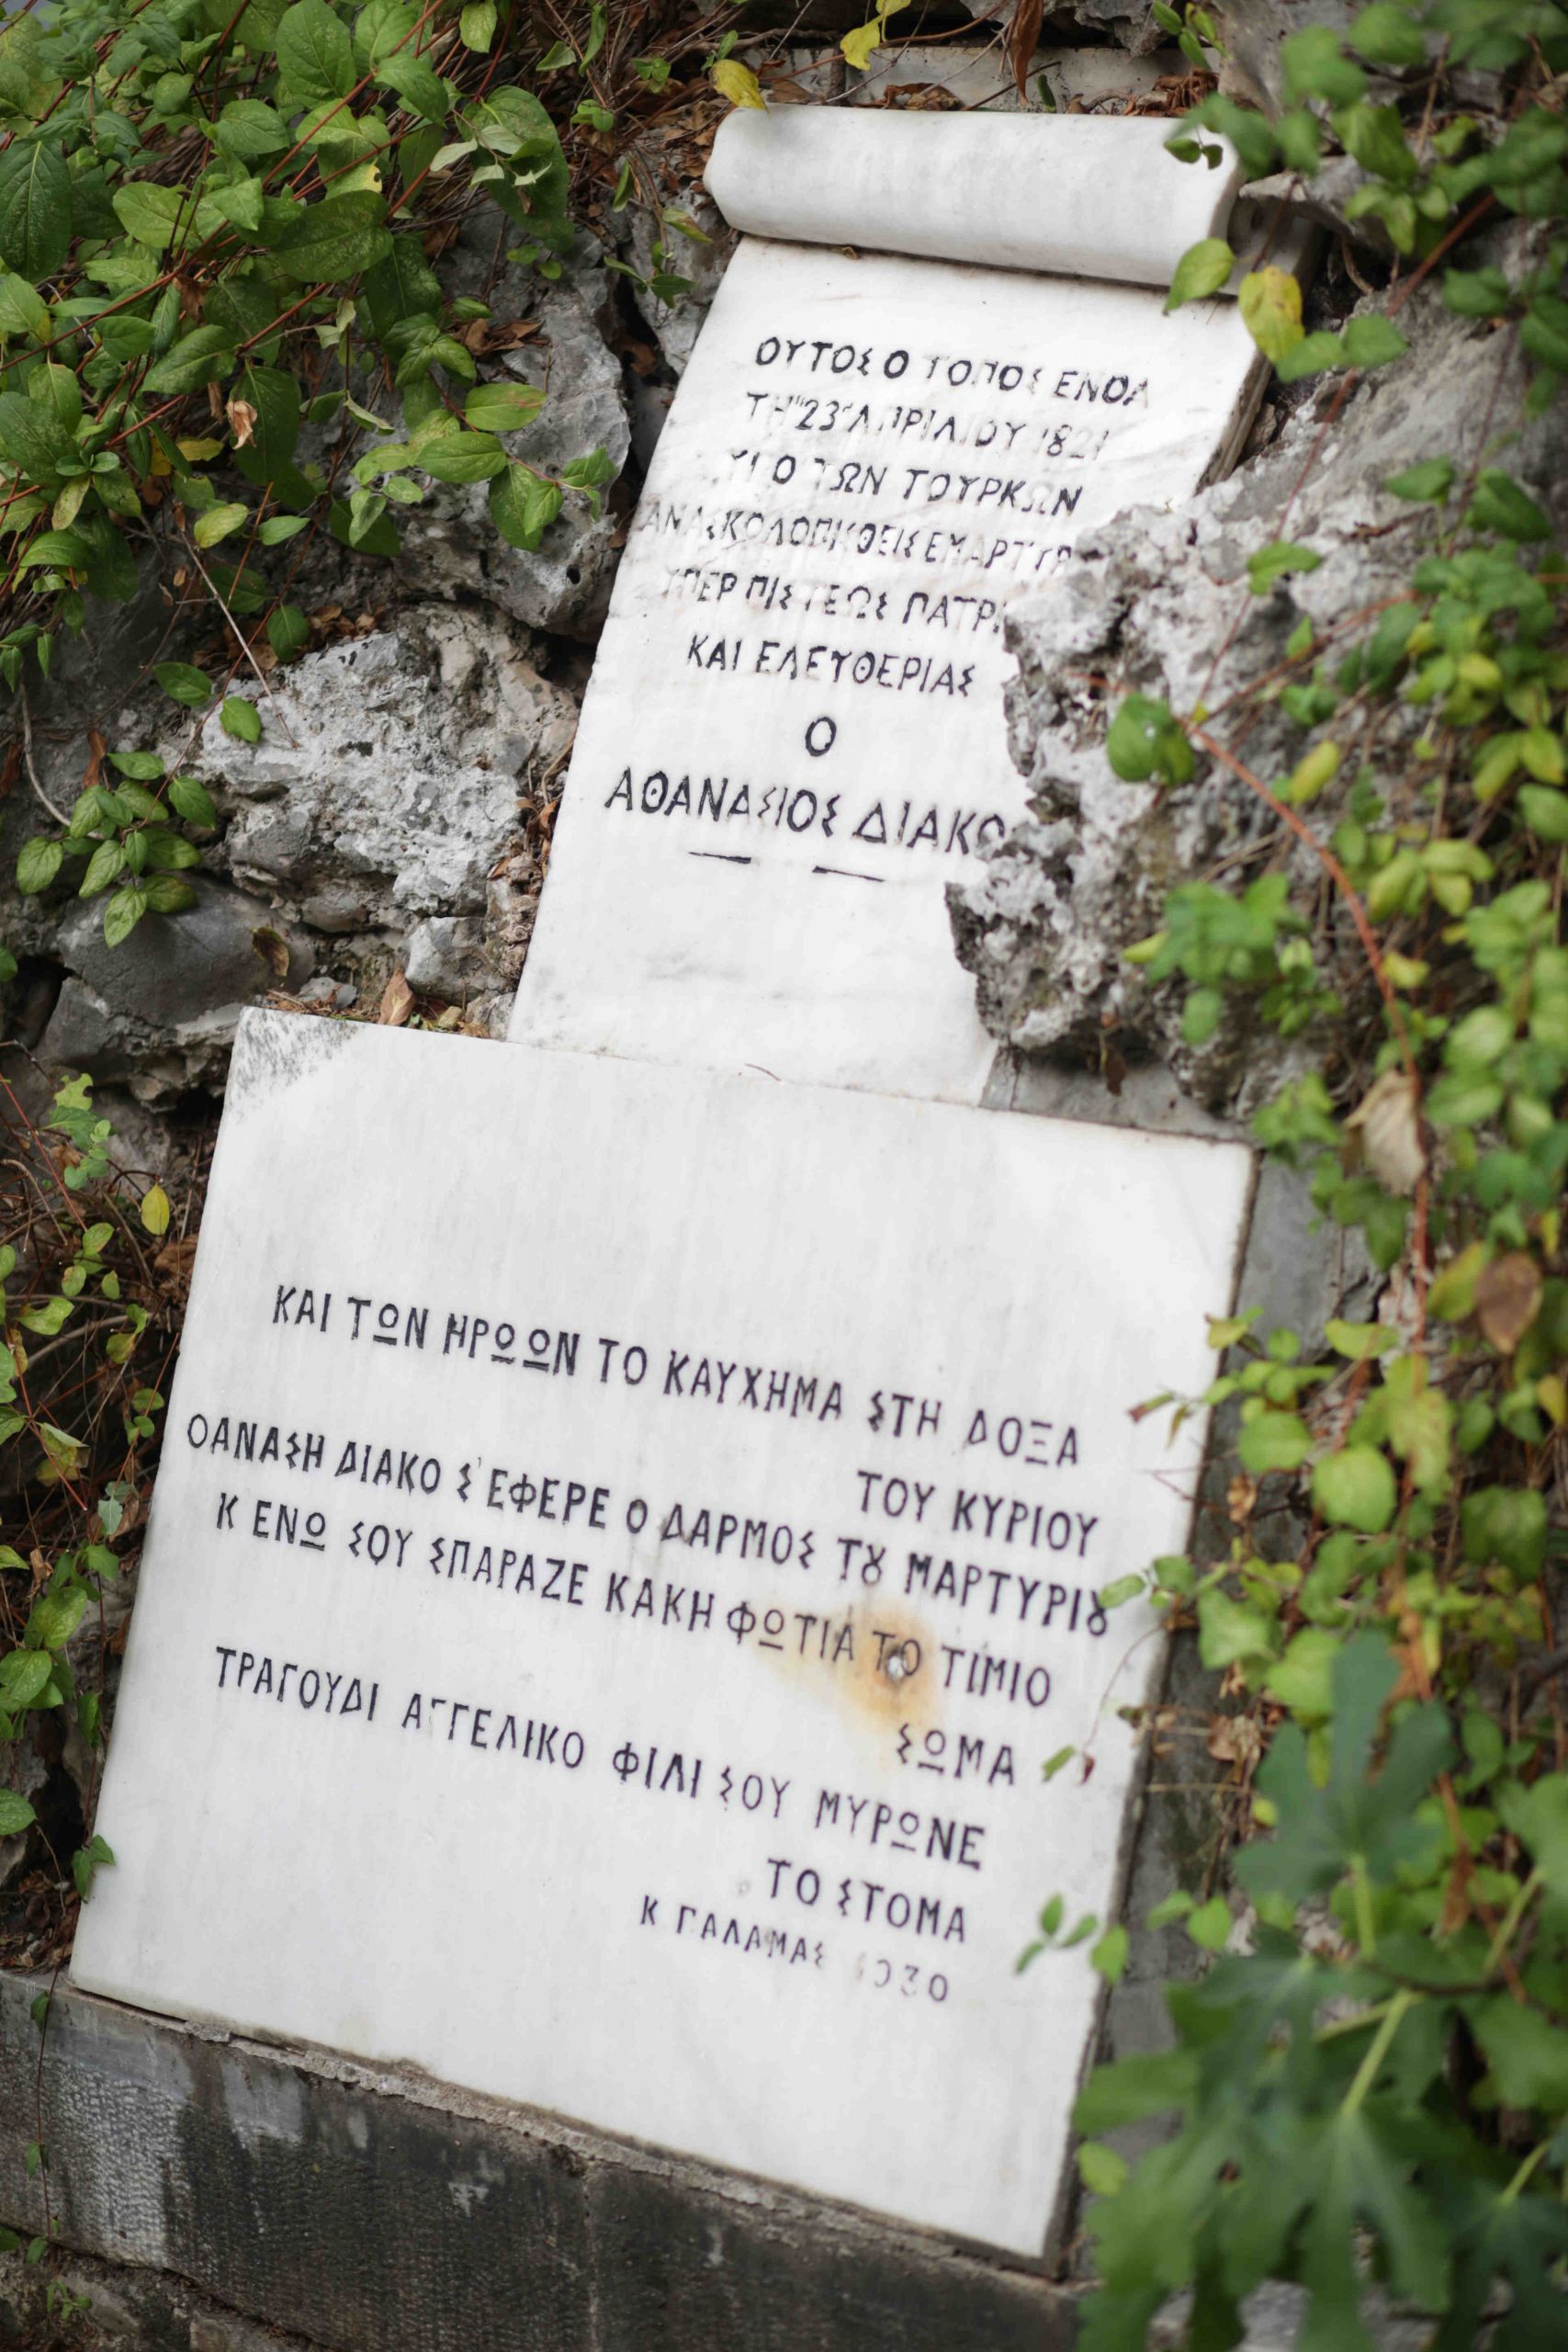 ΟΥΤΟΣ Ο ΤΟΠΟΣ ΕΝΘΑ
ΤΗ "23" ΑΠΡΙΛΙΟΥ 1821
ΥΠΟ ΤΩΝ ΤΟΥΡΚΩΝ
ΑΝΑΣΚΟΛΟΠΙΣΘΕΙΣ
ΥΠΕΡ ΠΙΣΤΕΩΣ
ΚΑΙ ΕΛΕΥΘΕΡΙΑΣ
Ο
ΑΘΑΝΑΣΙΟΣ ΔΙΑΚΟ
ΚΑΙ ΤΩΝ ΗΡΩΩΝ ΤΟ ΚΑΥΧΗΜΑ ΣΤΗ ΔΟΞΑ
ΤΟΥ ΚΥΡΙΟΥ
ΘΑΝΑΣΗ ΔΙΑΚΟ Σ' ΕΦΕΡΕ Ο ΔΑΡΜΟΣ ΤȢ ΜΑΡΤΥΡΙȢ
Κ ΕΝΩ ΣΟΥ ΣΠΑΡΑΖΕ ΚΑΚΗ ΦΩΤΙΑ ΤΟ ΤΙΜΙΟ
ΣΩΜΑ
ΤΡΑΓΟΥΔΙ ΑΓΓΕΛΙΚΟ ΦΙΛΙ ΣΟΥ ΜΥΡΩΝΕ
ΤΟ ΣΤΟΜΑ
Κ ΓΑΛΑΜΑΣ 1930